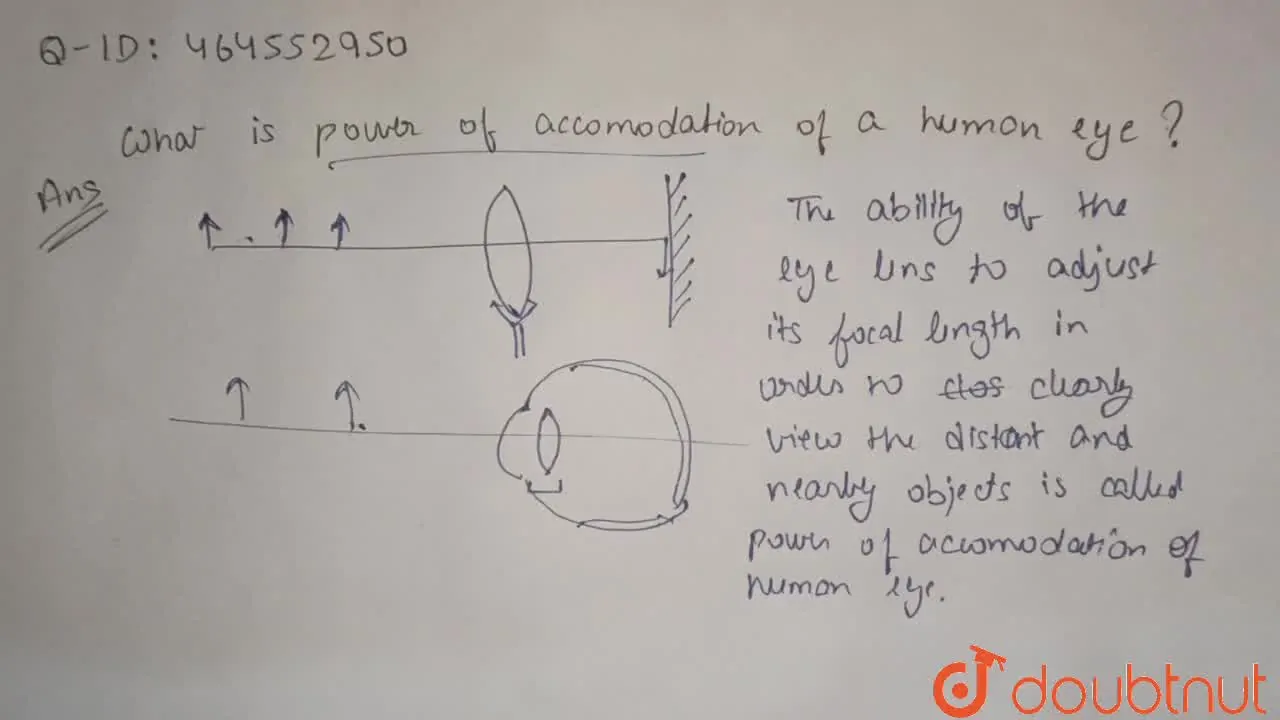 Q-ID: 464552950
What is power of accomodation of a human eye?
Ans
The ability of the
eye lens to adjust
its focal length in
order to clos clearly
view the distant and
nearby objects is called
power of accomodation of
human eye.
doubtnut